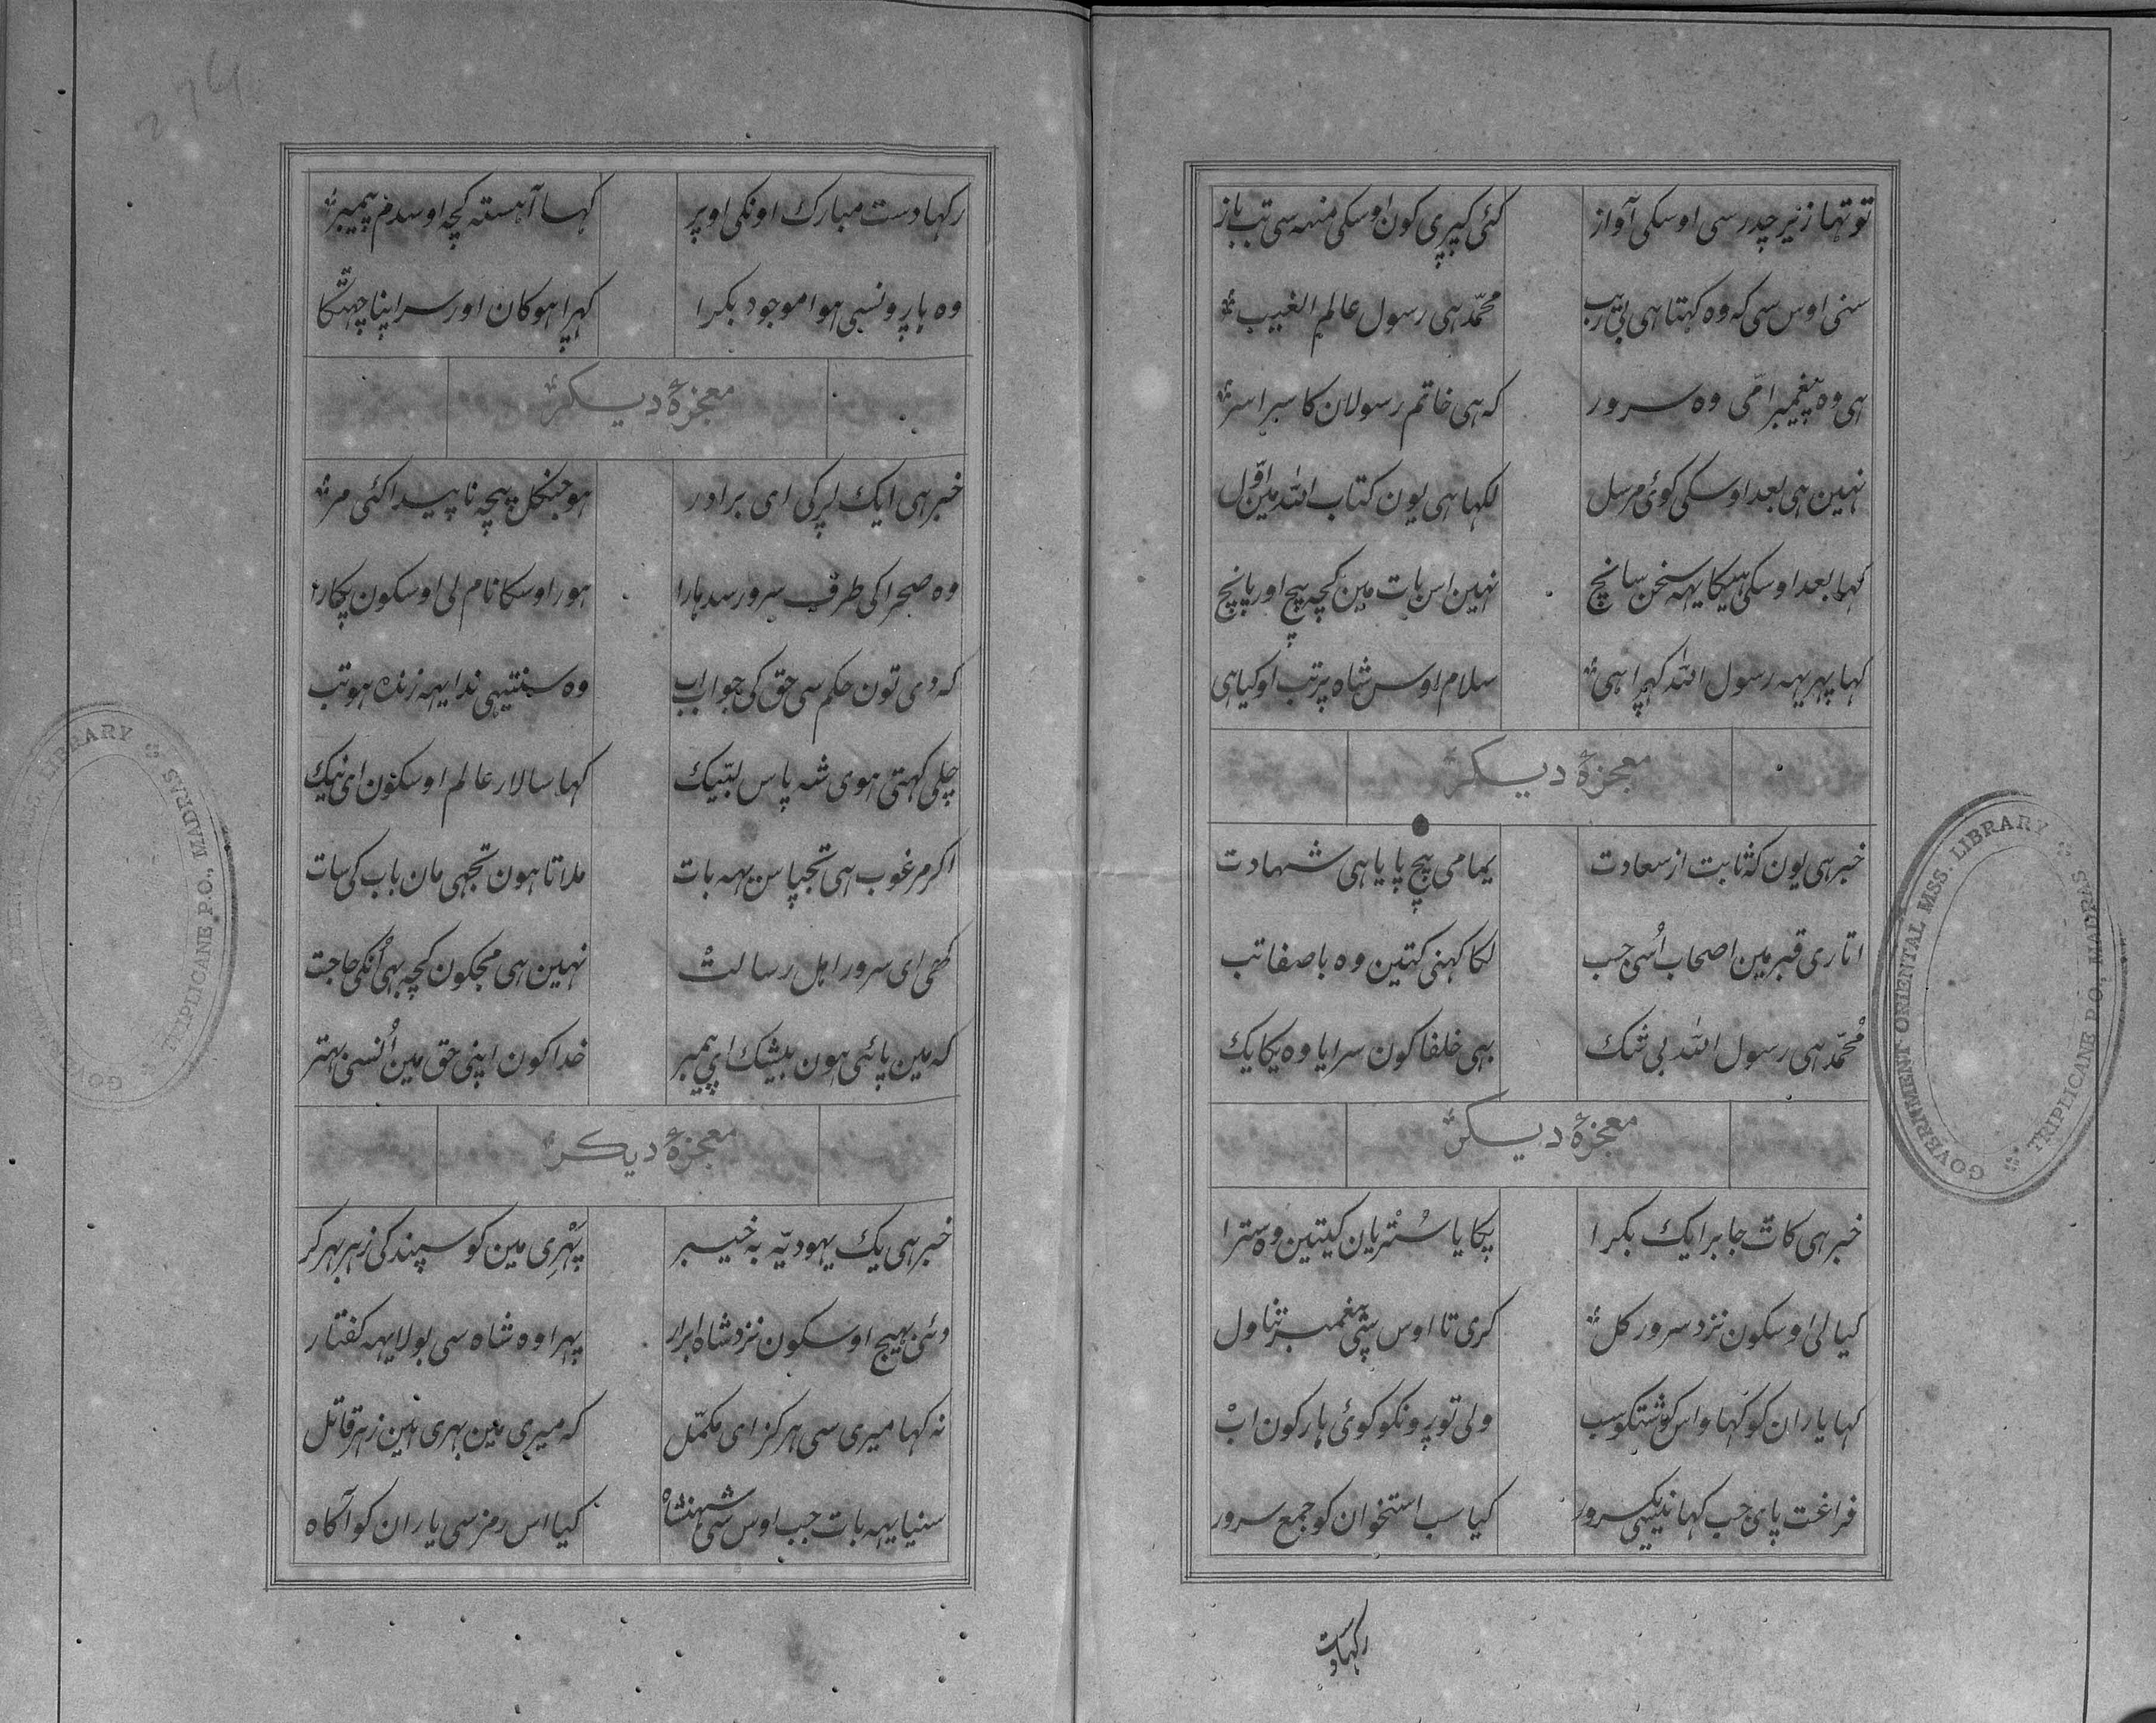 تو تہا زیر چدر سی اوسکی آواز کئی کپڑی کون اوسکی منہہ سی تب باز
سنی اوس سی کہ وہ کہتا ہی بی ریب محمّد ہی رسول عالم الغیب
ہی وہ پیغمبر امّی وہ سرور کہ ہی خاتم رسولان کا سراسر
نہین ہی بعد اوسکی کوئی مرسل لکہا ہی یون کتاب اللہ مین اوّل
کہا بعد اوسکی ہیکا یہہ سخن سانچ نہین اس بات مین کچہ پیچ اور پانچ
کہا پہر یہہ رسول اللہ کہڑا ہی سلام اوس شاہ پر تب او کیا ہی
معجزۂ دیکر
خبر ہی یون کہ ثابت از سعادت یمامی بیچ پایا ہی شہادت
اتاری قبر مین اصحاب اُسی جب لکا کہنی کتین وہ باصفا تب
محمّد ہی رسول اللہ بی شک بہی خلفا کون سرایا وہ یکایک
معجزۂ دیکر
خبر ہی کاٹ جابر ایک بکرا پکایا سُتریان کیتین وہ سترا
کیا لی اوسکون نزد سرور کل کری تا اوس ستی پیغمبر تناول
کہا یاران کو کہاو اس کوشتکو سب ولی توڑو نکو کوئی ہاڑ کون اب
فراغت پای جب کہانیکی سرور کیا سب استخوان کو جمع سرور
رکہا دست
رکہا دست مبارک اونکی اوپر کہا آہستہ کچہ اوسدم پیمبر
وہ ہاڑونسی ہوا موجود بکرا کہڑا ہو کان اور سر اپنا جہٹکا
معجزۂ دیکر
خبر ہی ایک لڑکی ای برادر ہو جنکل بیچہ ناپیدا کئی مر
وہ صحرا کی طرف سرور سدہارا ہور اوسکا نام لی اوسکون پکارا
کہ دی تون حکم سی حق کی جواب اب وہ سنتیہی ندا یہہ زندہ ہو تب
چلی کہتی ہوی شہ پاس لبّیک کہا سالار عالم اوسکون ای نیک
اکر مرغوب ہی تجپاس یہہ بات ملاتا ہون تجہی مان باپ کی سات
کہی ای سرور اہل رسالت نہین ہی مجکون کچہ بہی اُنکی حاجت
کہ مین پائی ہون بیشک ای پیمبر خدا کون اپنی حق مین اُنسی بہتر
معجزۂ دیکر
خبر ہی یک یہودیّہ بہ خیبر بہری مین کوسپند کی زہر بہر کر
دئی بہیج اوسکون نزد شاہ ابرار پہرا وہ شاہ سی بولا یہہ کفتار
نہ کہا میری سی ہرکز ای مکمّل کہ میری مین بہری ہین زہر قاتل
سنیا یہہ بات جب اوس ستی شہنشاہ کیا اس رمز سی یاران کو آکاہ
GOVERNMENT ORIENTAL MSS. LIBRARY
TRIPLICANE P.O., MADRAS